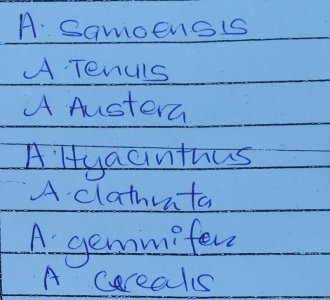 A. Samoensis
A. Tenuis
A Austera
A. Hyacinthus
A. clathrata
A. gemmifera
A cerealis